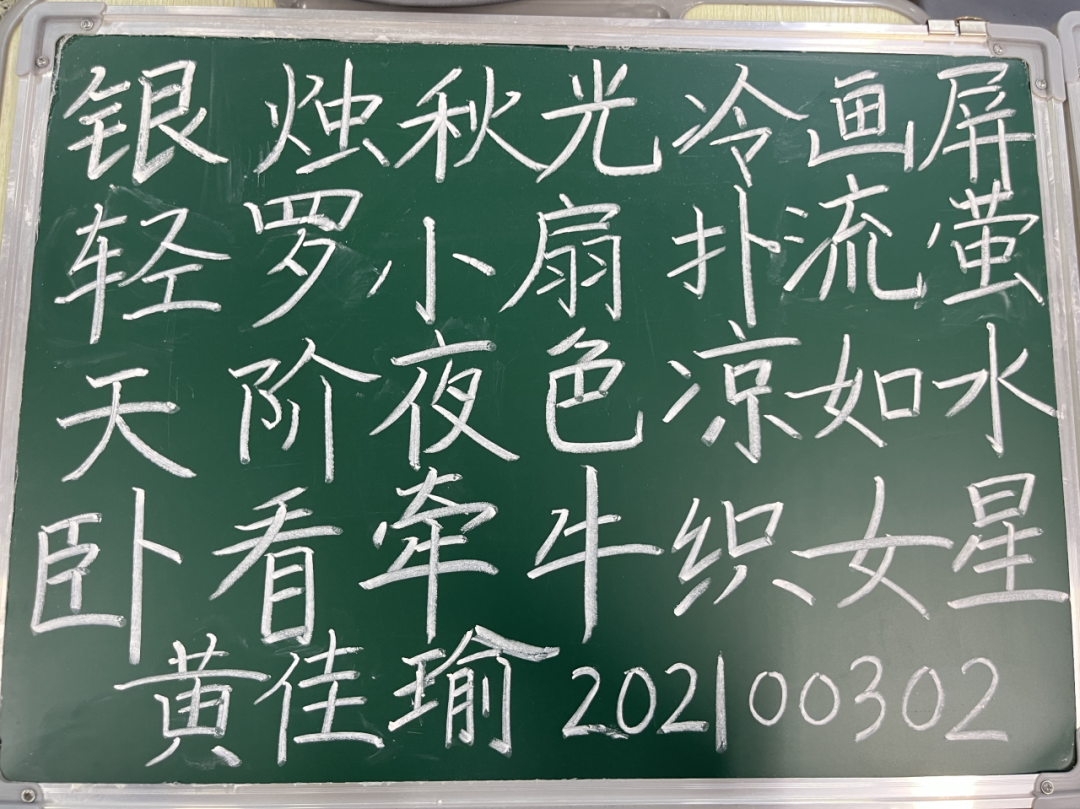 银烛秋光冷画屏
轻罗小扇扑流萤
天阶夜色凉如水
卧看牵牛织女星
黄佳瑜 202100302